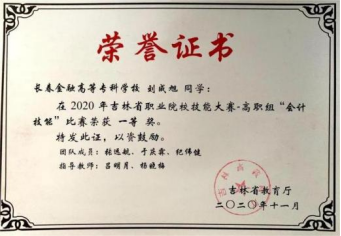 荣誉证书
长春金融高等专科学校 刘成旭 同学:
在2020年吉林省职业院校技能大赛-高职组“会计
技能”比赛荣获 一等 奖。
特发此证,以资鼓励。
团队成员:张远航、于莫霏、纪伟健
指导教师:吕明月、杨晓梅
吉林省教育厅
二〇二〇年十一月